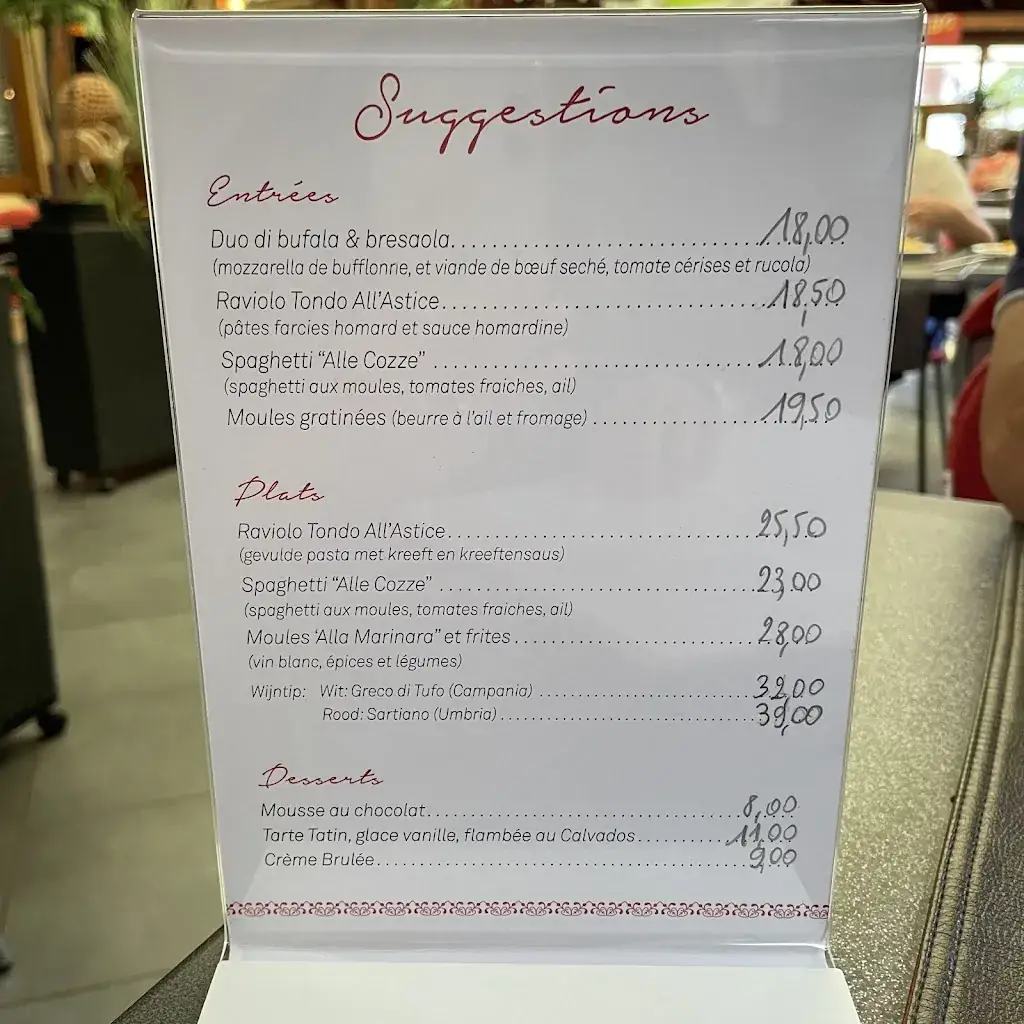 Suggestions
Entrées
Duo di bufala & bresaola........................................18,00
(mozzarella de bufflonne, et viande de bœuf seché, tomate cérises et rucola)
Raviolo Tondo All'Astice........................................18,50
(pâtes farcies homard et sauce homardine)
Spaghetti "Alle Cozze" ........................................18,00
(spaghetti aux moules, tomates fraiches, ail)
Moules gratinées (beurre à l'ail et fromage) ....................19,50
Plats
Raviolo Tondo All'Astice........................................25,50
(gevulde pasta met kreeft en kreeftensaus)
Spaghetti "Alle Cozze" ........................................23,00
(spaghetti aux moules, tomates fraiches, ail)
Moules 'Alla Marinara" et frites ..............................28,00
(vin blanc, épices et légumes)
Wijntip: Wit: Greco di Tufo (Campania) ..........................32,00
Rood: Sartiano (Umbria)........................................39,00
Desserts
Mousse au chocolat........................................8,00
Tarte Tatin, glace vanille, flambée au Calvados..............11,00
Crème Brulée..................................................9,00